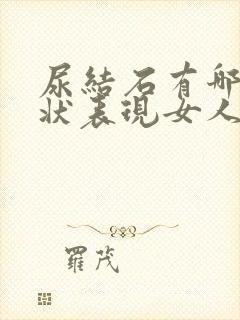 尿結石有哪
狀表現女人
羅茂